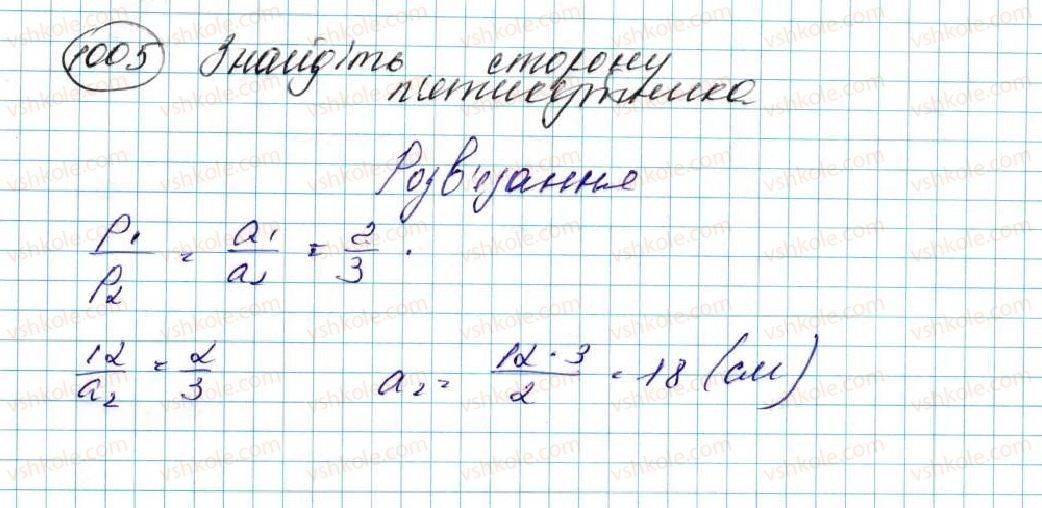 1005 Знайдіть сторону
п'ятикутника
Розв'язання
P₁/P₂ = a₁/a₂ = 2/3.
12/a₂ = 2/3 a₂ = (12·3)/2 = 18 (см)
vshkole.com